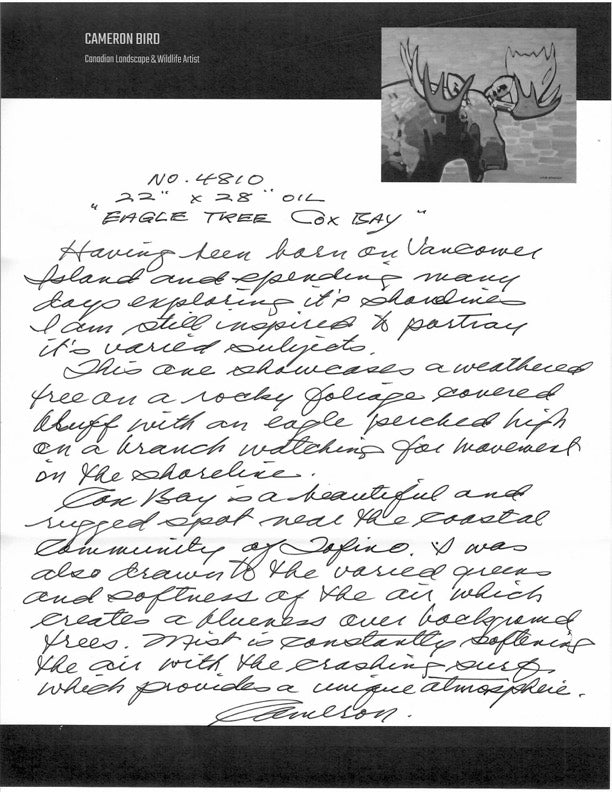 CAMERON BIRD
Canadian Landscape & Wildlife Artist
NO. 4810
22" x 28" OIL
"EAGLE TREE COX BAY"
Having been born on Vancouver
Island and spending many
days exploring it's shorelines
I am still inspired to portray
it's varied subjects.
This one showcases a weathered
tree on a rocky foliage covered
bluff with an eagle perched high
on a branch watching for movement
on the shoreline.
Cox Bay is a beautiful and
rugged spot near the coastal
community of Tofino. I was
also drawn to the varied greens
and softness of the air which
creates a blueness over background
trees. Mist is constantly softening
the air with the crashing surf
which provides a unique atmosphere.
Cameron.